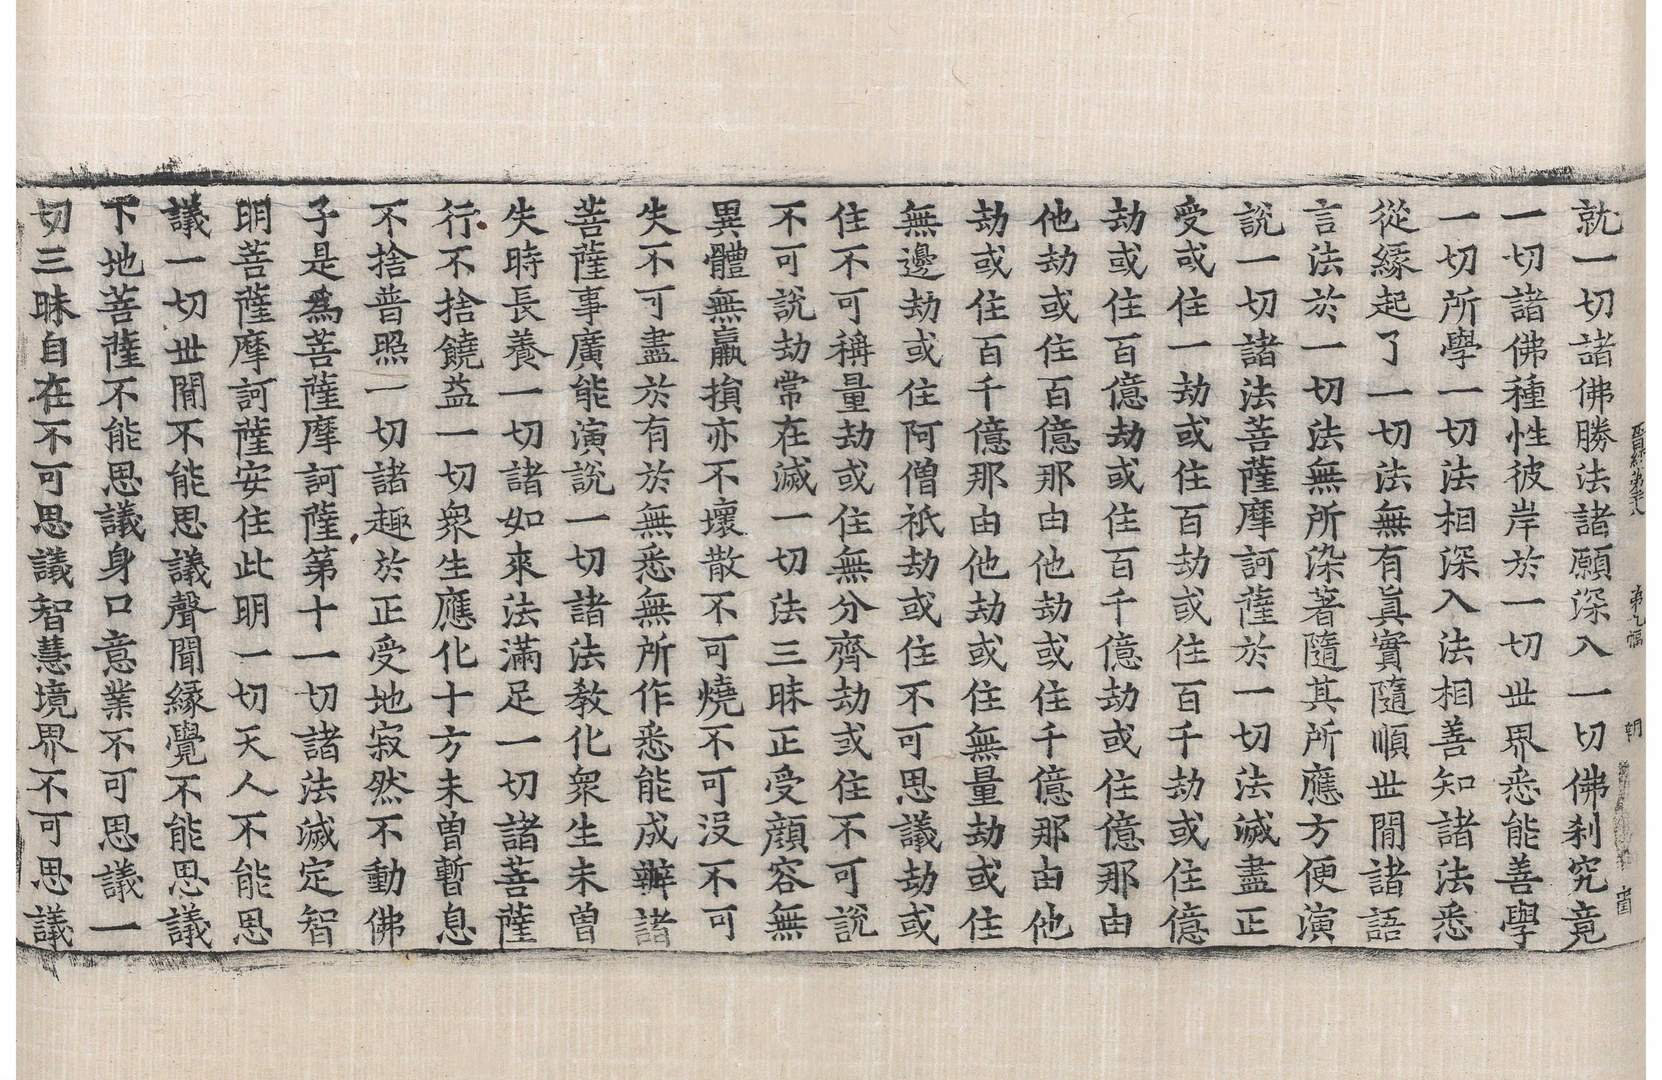 第九幅
朝
就一切諸佛勝法諸願深入一切佛刹究竟
一切諸佛種性彼岸於一切世界悉能善學
一切所學一切法相深入法相善知諸法悉
從緣起了一切法無有眞實隨順世閒諸語
言法於一切法無所染著隨其所應方便演
說一切諸法菩薩摩訶薩於一切法滅盡正
受或住一劫或住百劫或住百千劫或住億
劫或住百億劫或住百千億劫或住億那由
他劫或住百億那由他劫或住千億那由他
劫或住百千億那由他劫或住無量劫或住
無邊劫或住阿僧祇劫或住不可思議劫或
住不可稱量劫或住無分齊劫或住不可說
不可說劫常在滅一切法三昧正受顔容無
異體無羸損亦不壞散不可燒不可沒不可
失不可盡於有於無悉無所作悉能成辦諸
菩薩事廣能演說一切諸法教化衆生未曾
失時長養一切諸如來法滿足一切諸菩薩
行不捨饒益一切衆生應化十方未曾暫息
不捨普照一切諸趣於正受地寂然不動佛
子是爲菩薩摩訶薩第十一切諸法滅定智
明菩薩摩訶薩安住此明一切天人不能思
議一切世閒不能思議聲聞緣覺不能思議
下地菩薩不能思議身口意業不可思議一
切三昧自在不可思議智慧境界不可思議